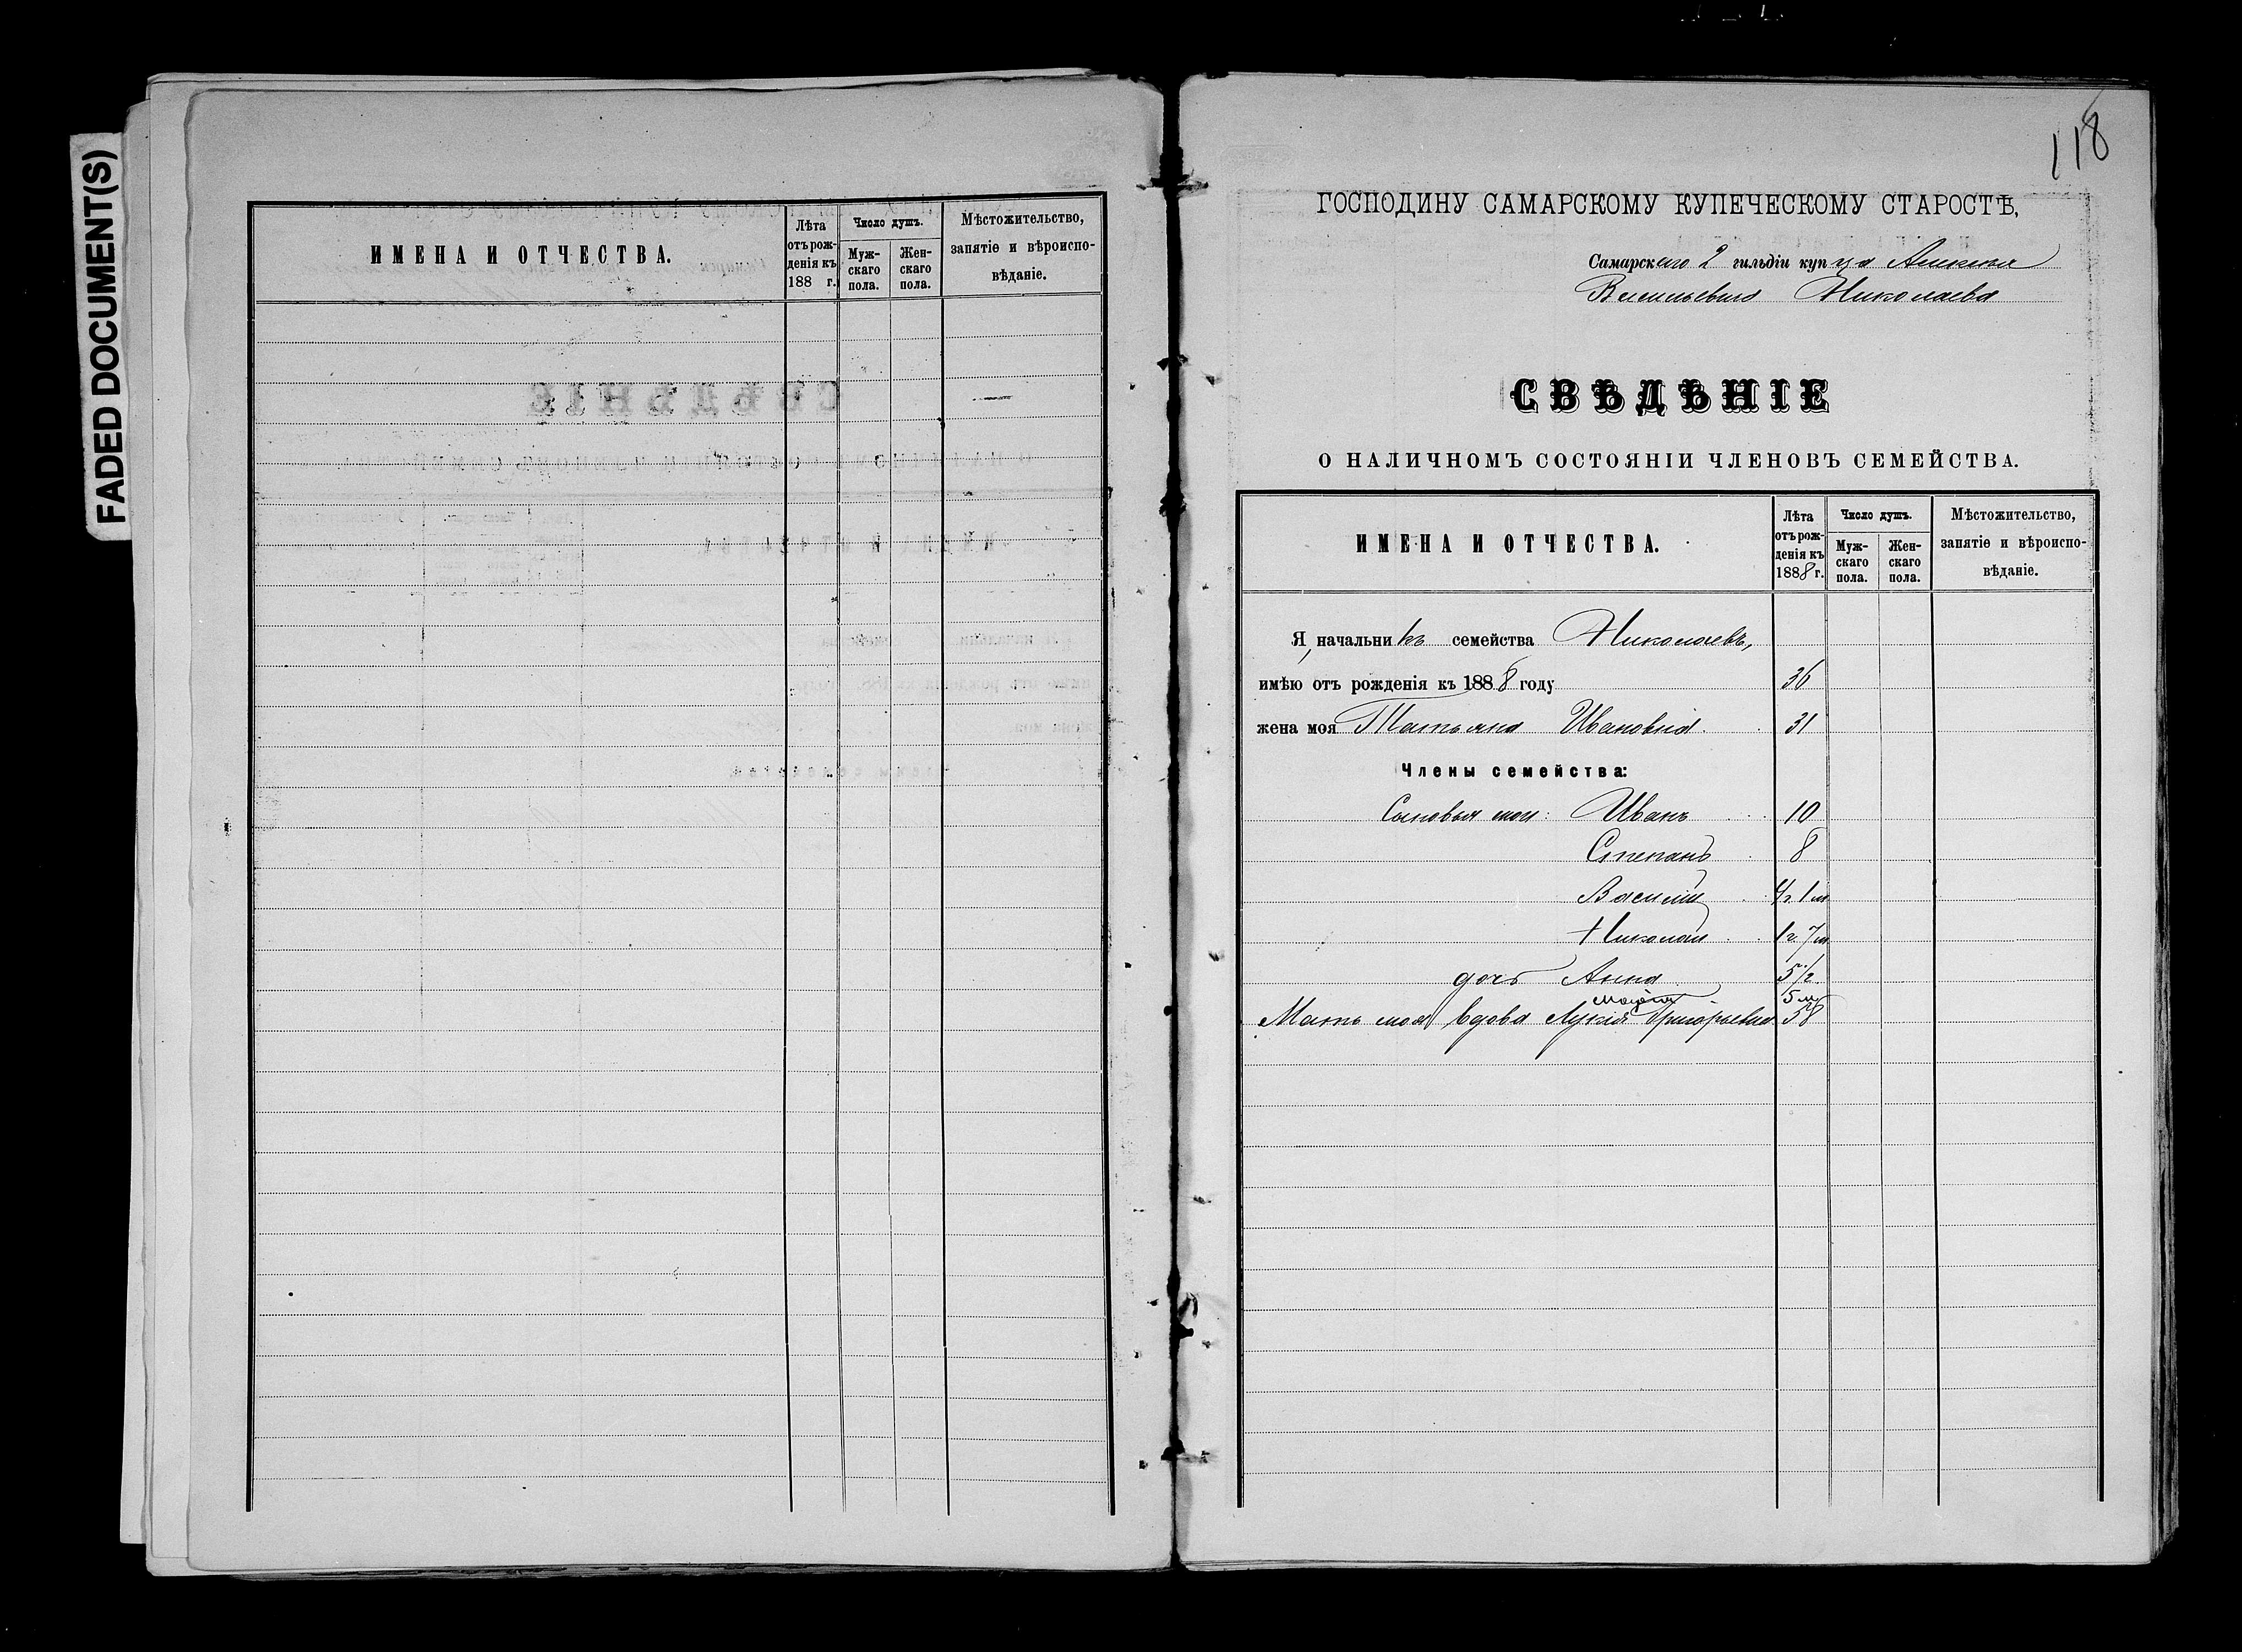 FADED DOCUMENT(S)
ИМЕНА И ОТЧЕСТВА.
Лѣта
отъ рож-
денія къ
188 г.
Число душъ.
Муж-
скаго
пола.
Жен-
скаго
пола.
Мѣстожительство,
занятіе и вѣроиспо-
вѣданіе.
118
ГОСПОДИНУ САМАРСКОМУ КУПЕЧЕСКОМУ СТАРОСТѢ,
Самарскаго 2 гильдіи купца
Васильевича Николаева
СВѢДѢНІЕ
О НАЛИЧНОМЪ СОСТОЯНІИ ЧЛЕНОВЪ СЕМЕЙСТВА.
ИМЕНА И ОТЧЕСТВА.
Лѣта
отъ рож-
денія къ
1888 г.
Число душъ.
Муж-
скаго
пола.
Жен-
скаго
пола.
Мѣстожительство,
занятіе и вѣроиспо-
вѣданіе.
Я, начальникъ семейства Николаевъ,
имѣю отъ рожденія къ 1888 году 36
жена моя Татьяна Ивановна 31
Члены семейства:
Сыновья мои: Иванъ 10
Степанъ 8
Василій 4 г. 1 м
Николай 1 г. 7 м
дочь Анна 5 1/2
5 м
Мать моя вдова Григорьевна 58